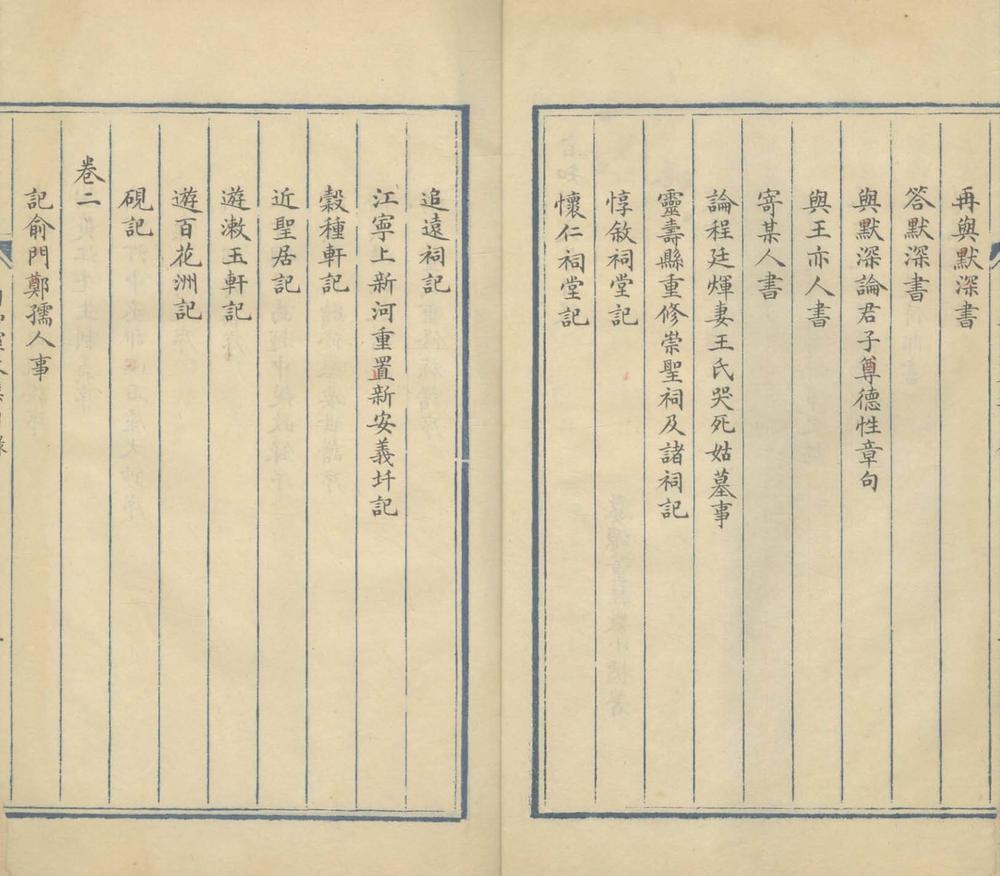 再與默深書
答默深書
與默深論君子尊德性章句
與王亦人書
寄某人書
論程廷煇妻王氏哭死姑墓事
靈壽縣重修崇聖祠及諸祠記
惇敘祠堂記
懷仁祠堂記
追遠祠記
江寧上新河重置新安義圩記
穀種軒記
近聖居記
遊漱玉軒記
遊百花洲記
硯記
卷二
記俞門鄭孺人事